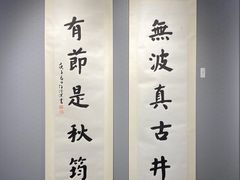 無波真古井
有節是秋筠